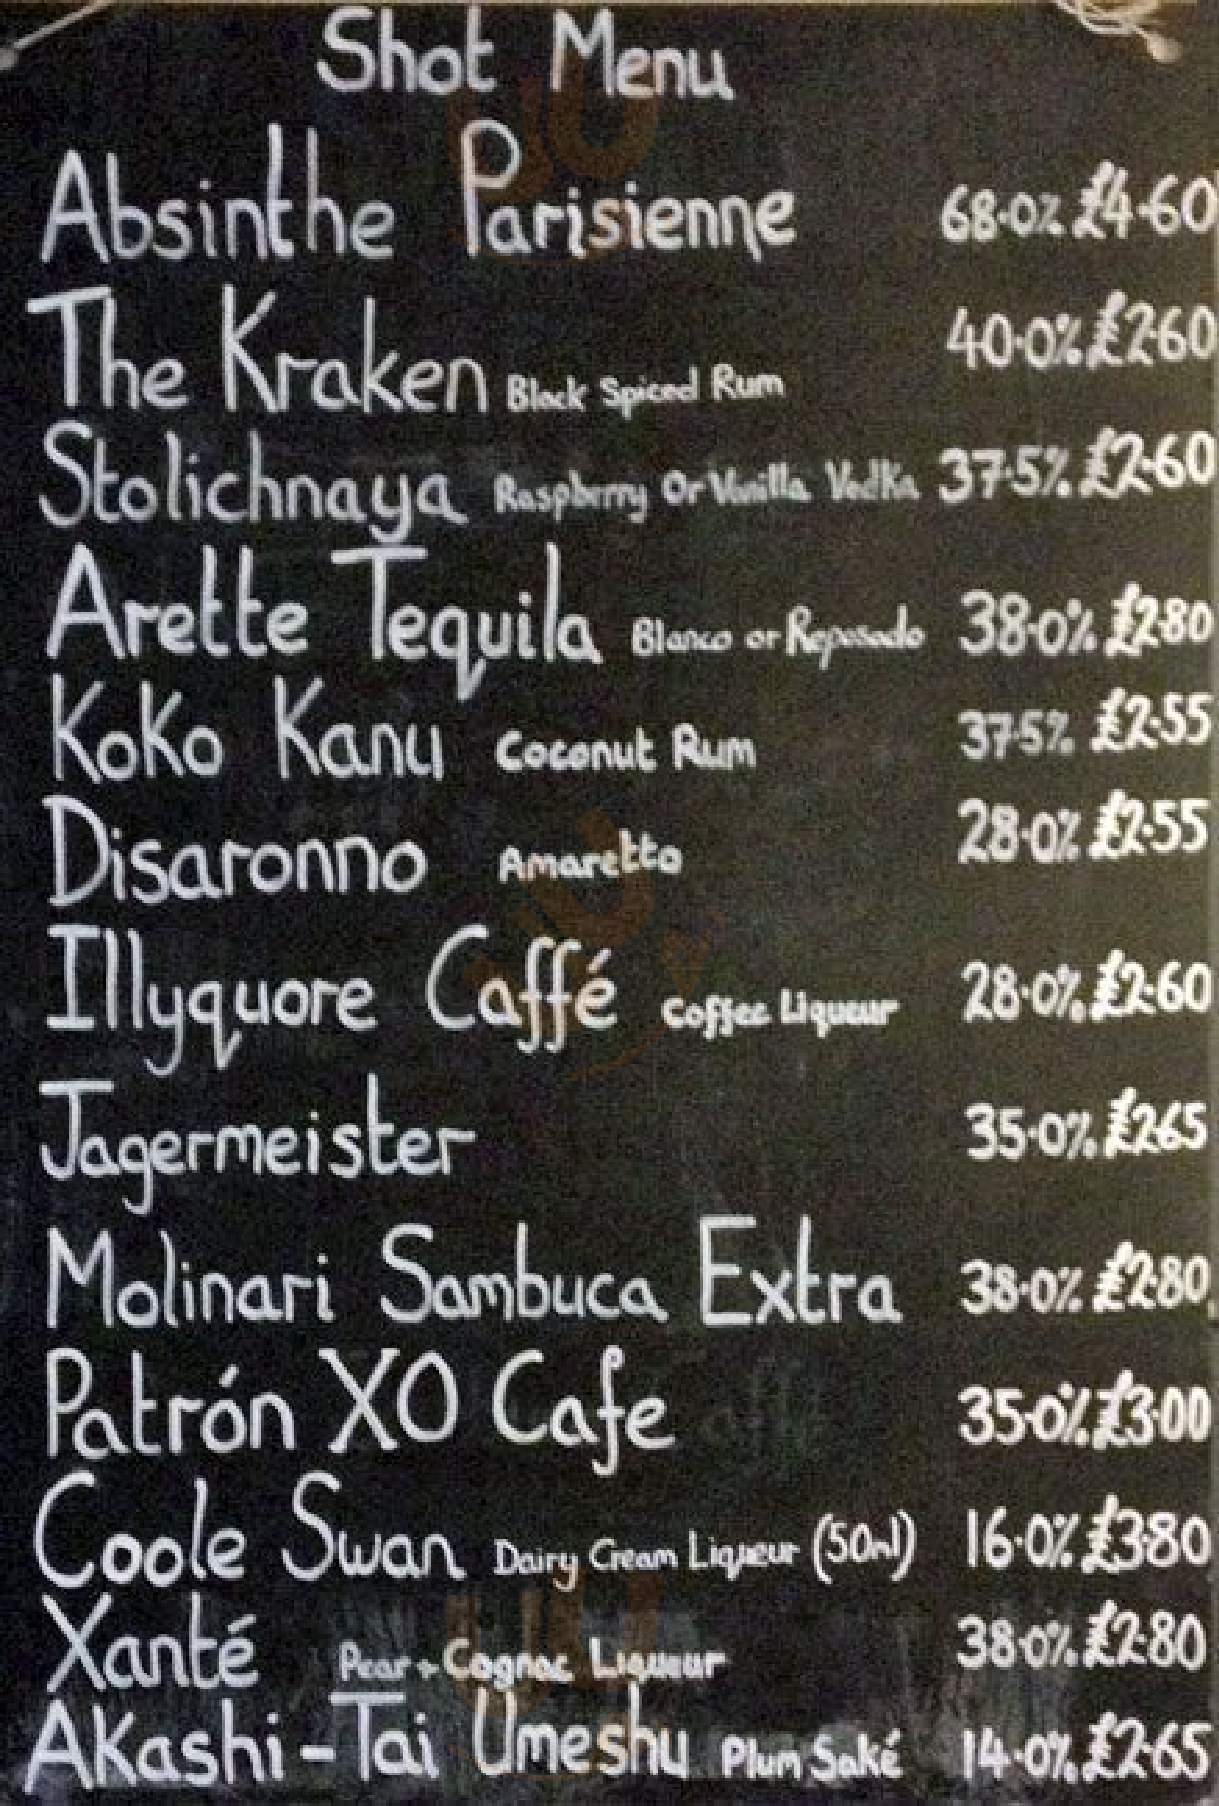 Shot Menu
Absinthe Parisienne 68.0% £4.60
The Kraken Black Spiced Rum 40.0% £2.60
Stolichnaya Raspberry Or Vanilla Vodka 37.5% £2.60
Arette Tequila Blanco or Reposado 38.0% £2.80
Koko Kanu Coconut Rum 37.5% £2.55
Disaronno Amaretto 28.0% £2.55
Illyquore Caffé Coffee Liqueur 28.0% £2.60
Jagermeister 35.0% £2.65
Molinari Sambuca Extra 38.0% £2.80
Patrón XO Cafe 35.0% £3.00
Coole Swan Dairy Cream Liqueur (50ml) 16.0% £3.80
Xanté Pear + Cognac Liqueur 38.0% £2.80
Akashi-Tai Umeshu Plum Saké 14.0% £2.65